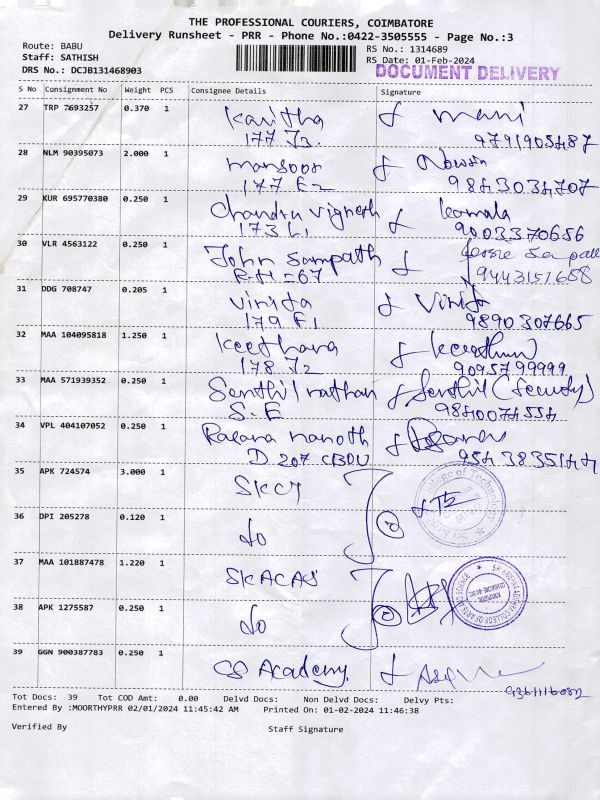 THE PROFESSIONAL COURIERS, COIMBATORE
Delivery Runsheet - PRR - Phone No.:0422-3505555 - Page No.:3
Route: BABU
Staff: SATHISH
DRS No.: DCJB131468903
RS No.: 1314689
RS Date: 01-Feb-2024
DOCUMENT DELIVERY
S No Consignment No Weight PCS Consignee Details Signature
27 TRP 7693257 0.370 1 Kavitha Mani
177 J2. 9791905487
28 NLM 90395073 2.000 1 mansoor
177 E2 9843034707
29 KUR 695770380 0.250 1 Chandru Vignesh Kamala
173 L1 9003370656
30 VLR 4563122 0.250 1 John Sampath
R.H-67 9443151688
31 DDG 708747 0.205 1 Vinita Vinita
179 F1 9890307665
32 MAA 104095818 1.250 1 Keethana
178 J2 9095799999
33 MAA 571939352 0.250 1 Senthil nathan Senthil (Security)
S.E 9840074554
34 VPL 404107052 0.250 1
D 207 CBDU 9543835144
35 APK 724574 3.000 1 SKCT
36 DPI 205278 0.120 1 do
37 MAA 101887478 1.220 1 SKACAS
38 APK 1275587 0.250 1 do
39 GGN 900387783 0.250 1 CS Academy.
9361116082
Tot Docs: 39 Tot COD Amt: 0.00 Delvd Docs: Non Delvd Docs: Delvy Pts:
Entered By :MOORTHYPRR 02/01/2024 11:45:42 AM Printed On: 01-02-2024 11:46:38
Verified By Staff Signature